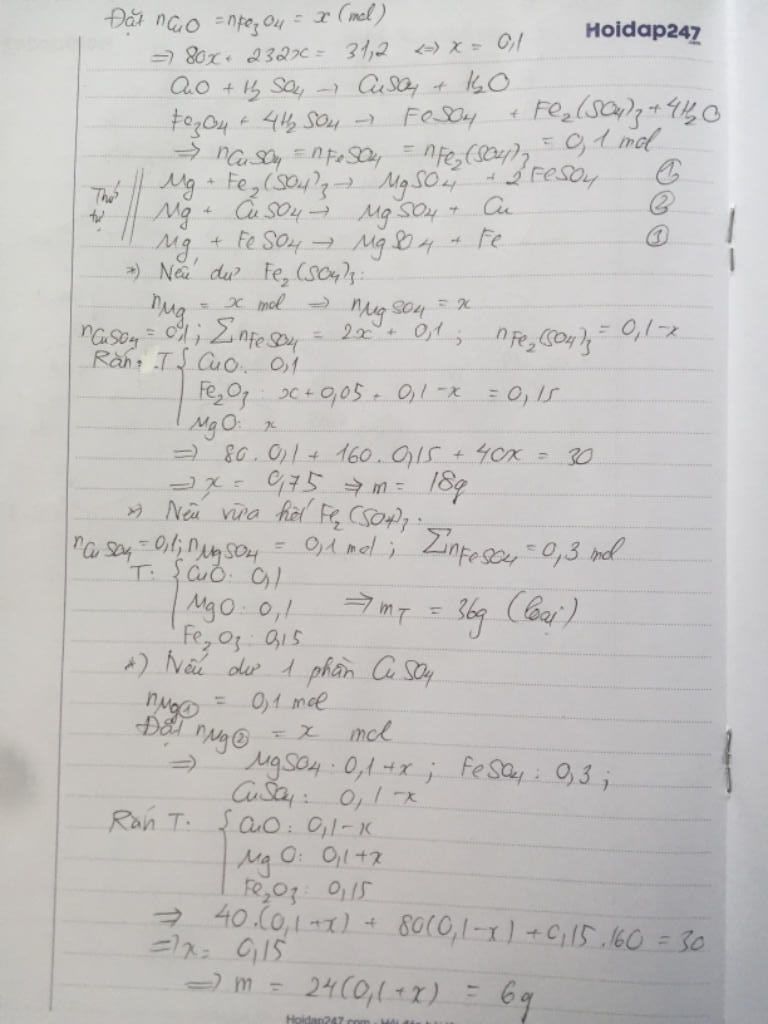 Đặt nCuO = nFe3O4 = x (mol)
Hoidap247
.com
=> 80x + 232x = 31,2 <=> x = 0,1
CuO + H2SO4 → CuSO4 + H2O
Fe3O4 + 4H2SO4 → FeSO4 + Fe2(SO4)3 + 4H2O
=> nCuSO4 = nFeSO4 = nFe2(SO4)3 = 0,1 mol
Thứ tự
Mg + Fe2(SO4)3 → MgSO4 + 2FeSO4 ①
Mg + CuSO4 → MgSO4 + Cu ②
Mg + FeSO4 → MgSO4 + Fe ③
*) Nếu dư Fe2(SO4)3:
nMg = x mol => nMgSO4 = x
nCuSO4 = 0,1; ΣnFeSO4 = 2x + 0,1; nFe2(SO4)3 = 0,1-x
Rắn T { CuO: 0,1
Fe2O3: x+0,05 + 0,1-x = 0,15
MgO: x
=> 80.0,1 + 160.0,15 + 40x = 30
=> x = 0,75 => m = 18g
*) Nếu vừa hết Fe2(SO4)3:
nCuSO4 = 0,1; nMgSO4 = 0,1 mol; ΣnFeSO4 = 0,3 mol
T: { CuO: 0,1
MgO: 0,1 => mT = 36g (loại)
Fe2O3: 0,15
*) Nếu dư 1 phần CuSO4
nMg① = 0,1 mol
Đặt nMg② = x mol
=> MgSO4: 0,1+x; FeSO4: 0,3;
CuSO4: 0,1-x
Rắn T: { CuO: 0,1-x
MgO: 0,1+x
Fe2O3: 0,15
=> 40.(0,1+x) + 80(0,1-x) + 0,15.160 = 30
=> x = 0,15
=> m = 24(0,1+x) = 6g
Hoidap247.com